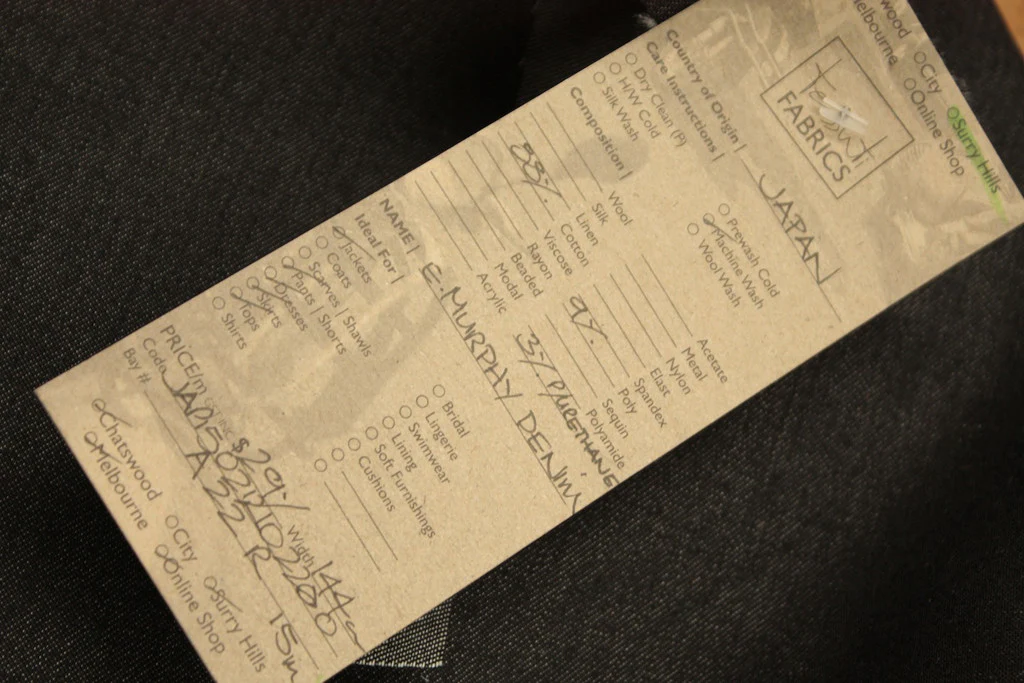 wood City Surry Hills
Melbourne Online Shop
Tessuti
FABRICS
Country of Origin | JAPAN
Care Instructions |
Dry Clean (P) Prewash Cold
H/W Cold Machine Wash
Silk Wash Wool Wash
Composition |
Wool Acetate
Silk Metal
Linen Nylon
88% Cotton Elast
Viscose 9% Spandex
Rayon Poly
Beaded Sequin
Modal 3% PURETHANE Polyamide
Acrylic
NAME | E. MURPHY DENIM
Ideal For |
Jackets Bridal
Coats Lingerie
Scarves | Shawls Swimwear
Pants | Shorts Lining
Dresses Soft Furnishings
Skirts Cushions
Tops
Shirts
PRICE/m $29/ Width 144cm
Code
Bay # A22 R 15m
Chatswood City Surry Hills
Melbourne Online Shop